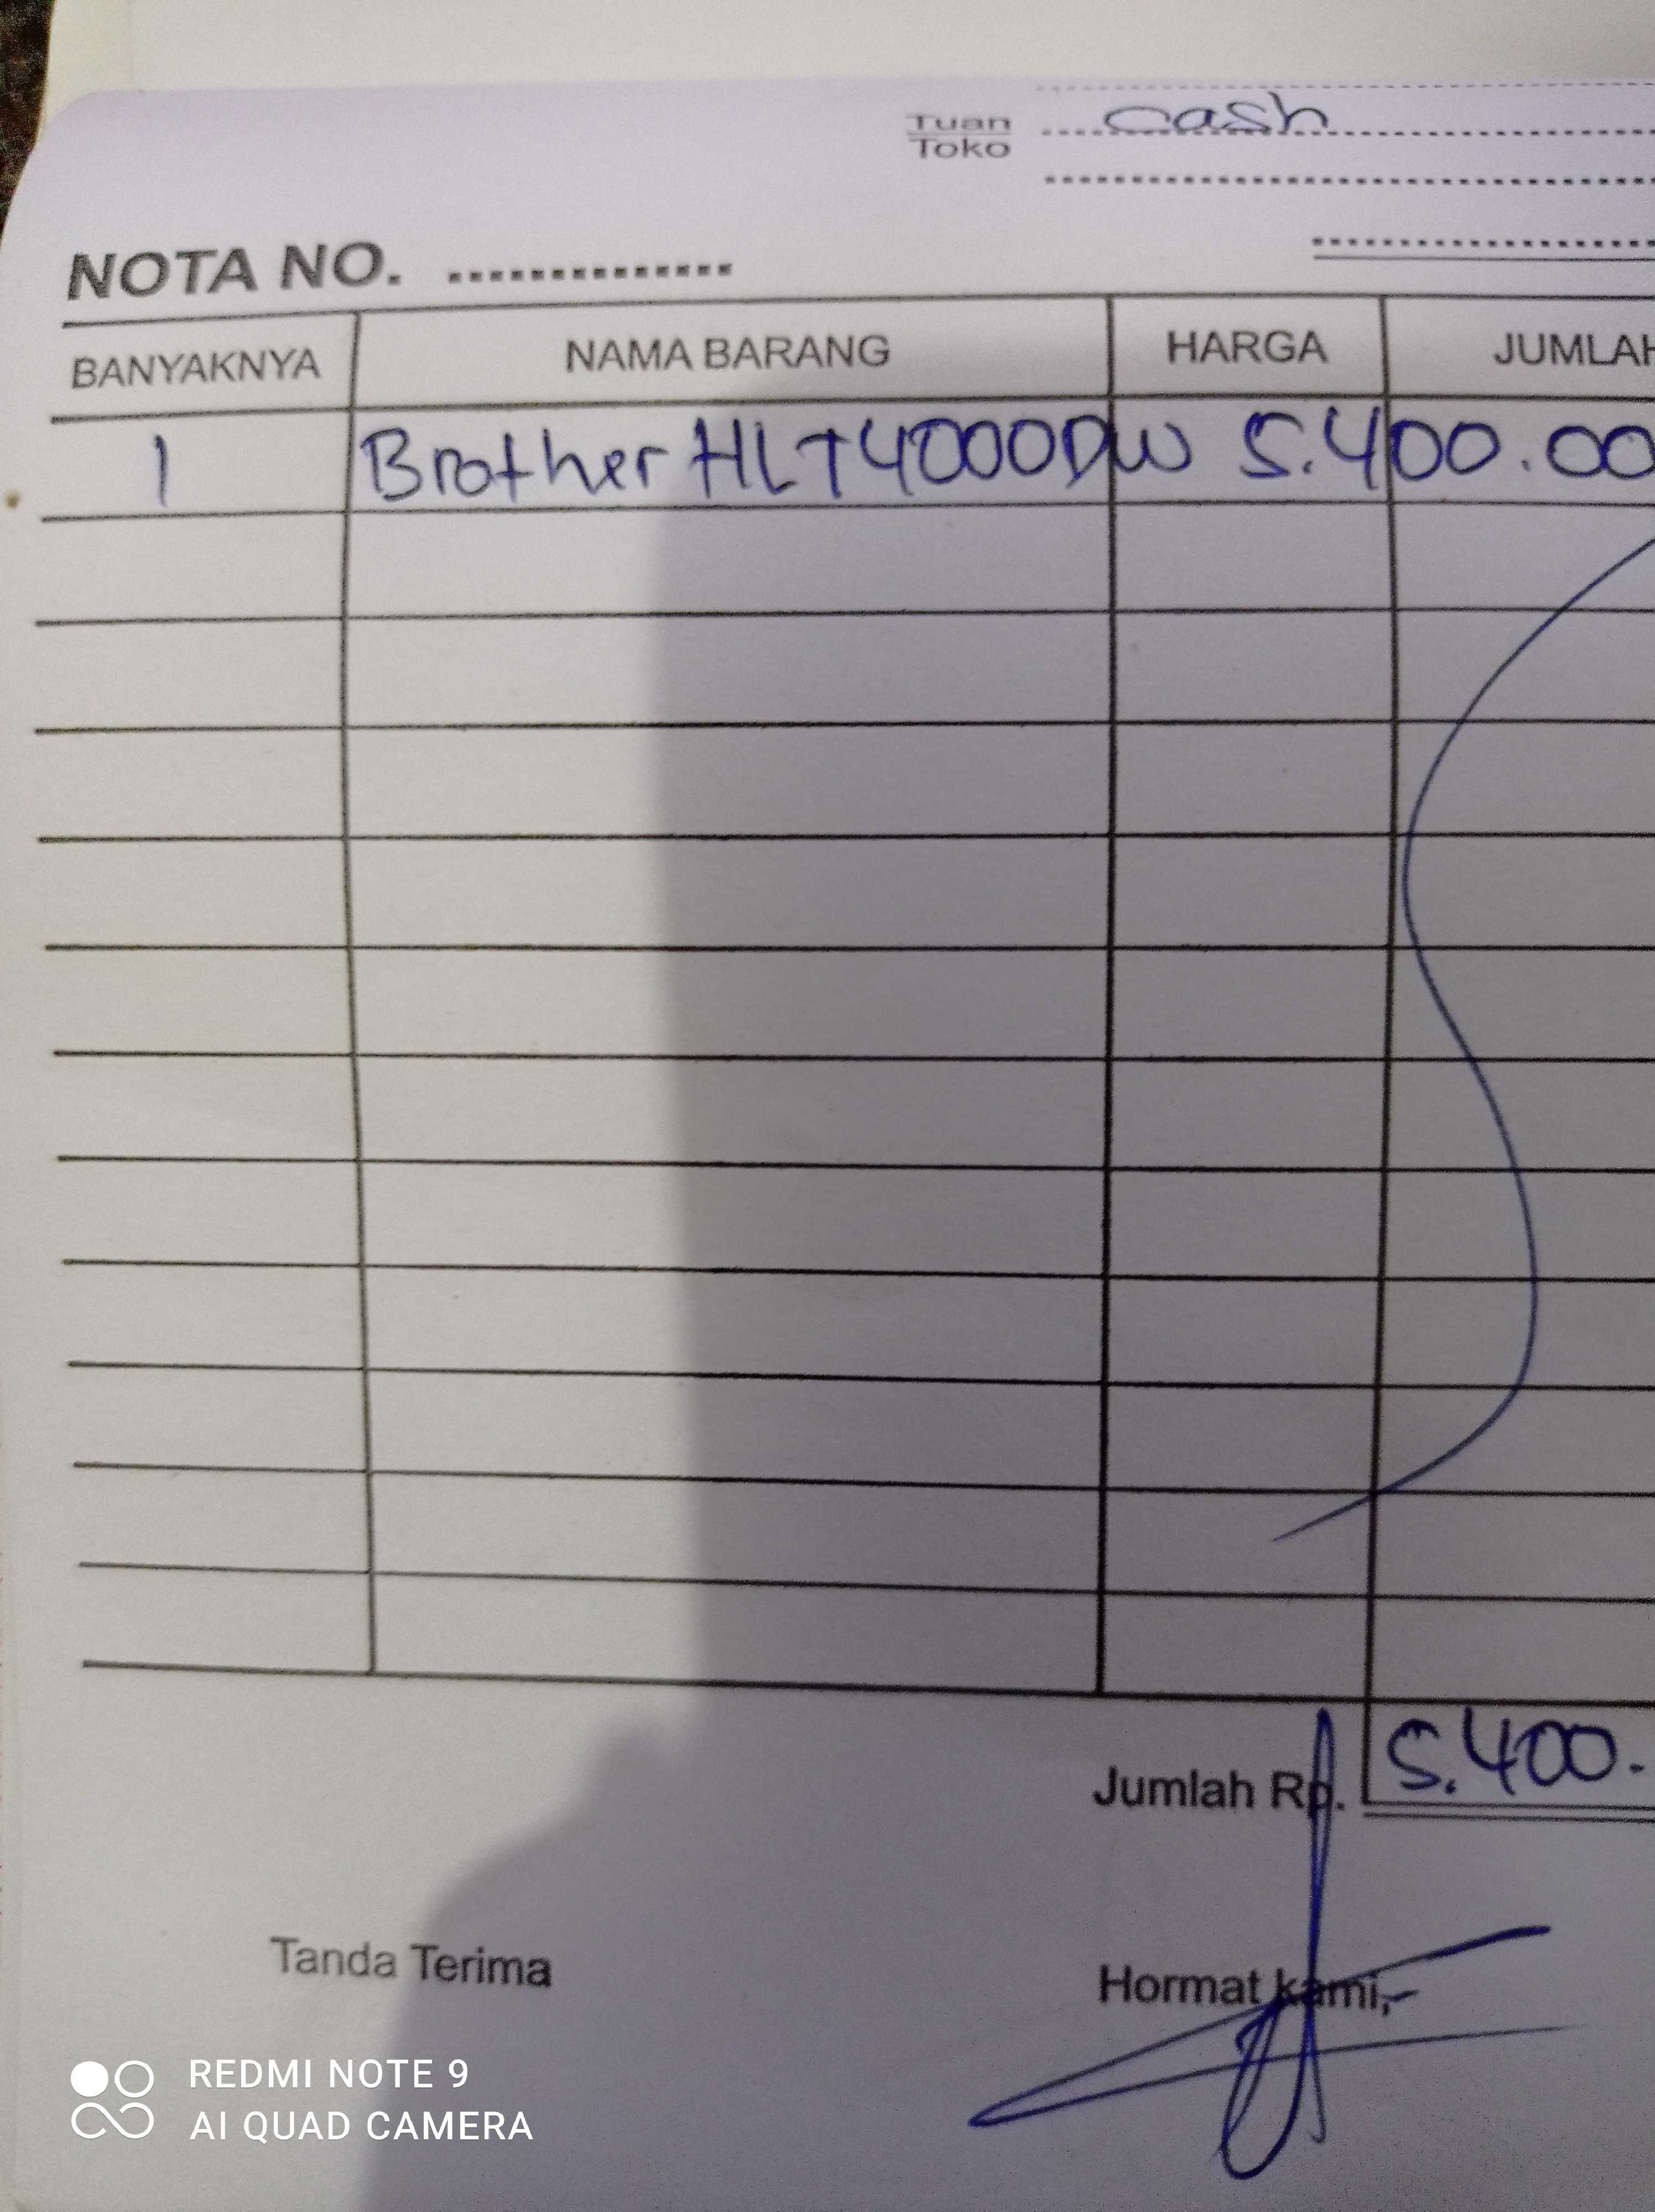 Tuan cash
Toko
NOTA NO.
BANYAKNYA NAMA BARANG HARGA JUMLAH
1 Brother HLT4000DW 5.400.00
Jumlah Rp. 5.400.
Tanda Terima Hormat kami,-
REDMI NOTE 9
AI QUAD CAMERA